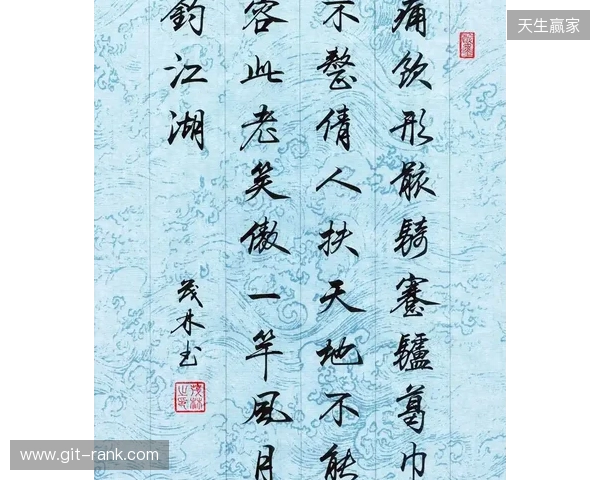 痛飲形骸騎蹇驢葛巾
不整倩人扶天地不能
容此老笑傲一竿風月
釣江湖
茂林书
天生赢家
www.git-rank.com